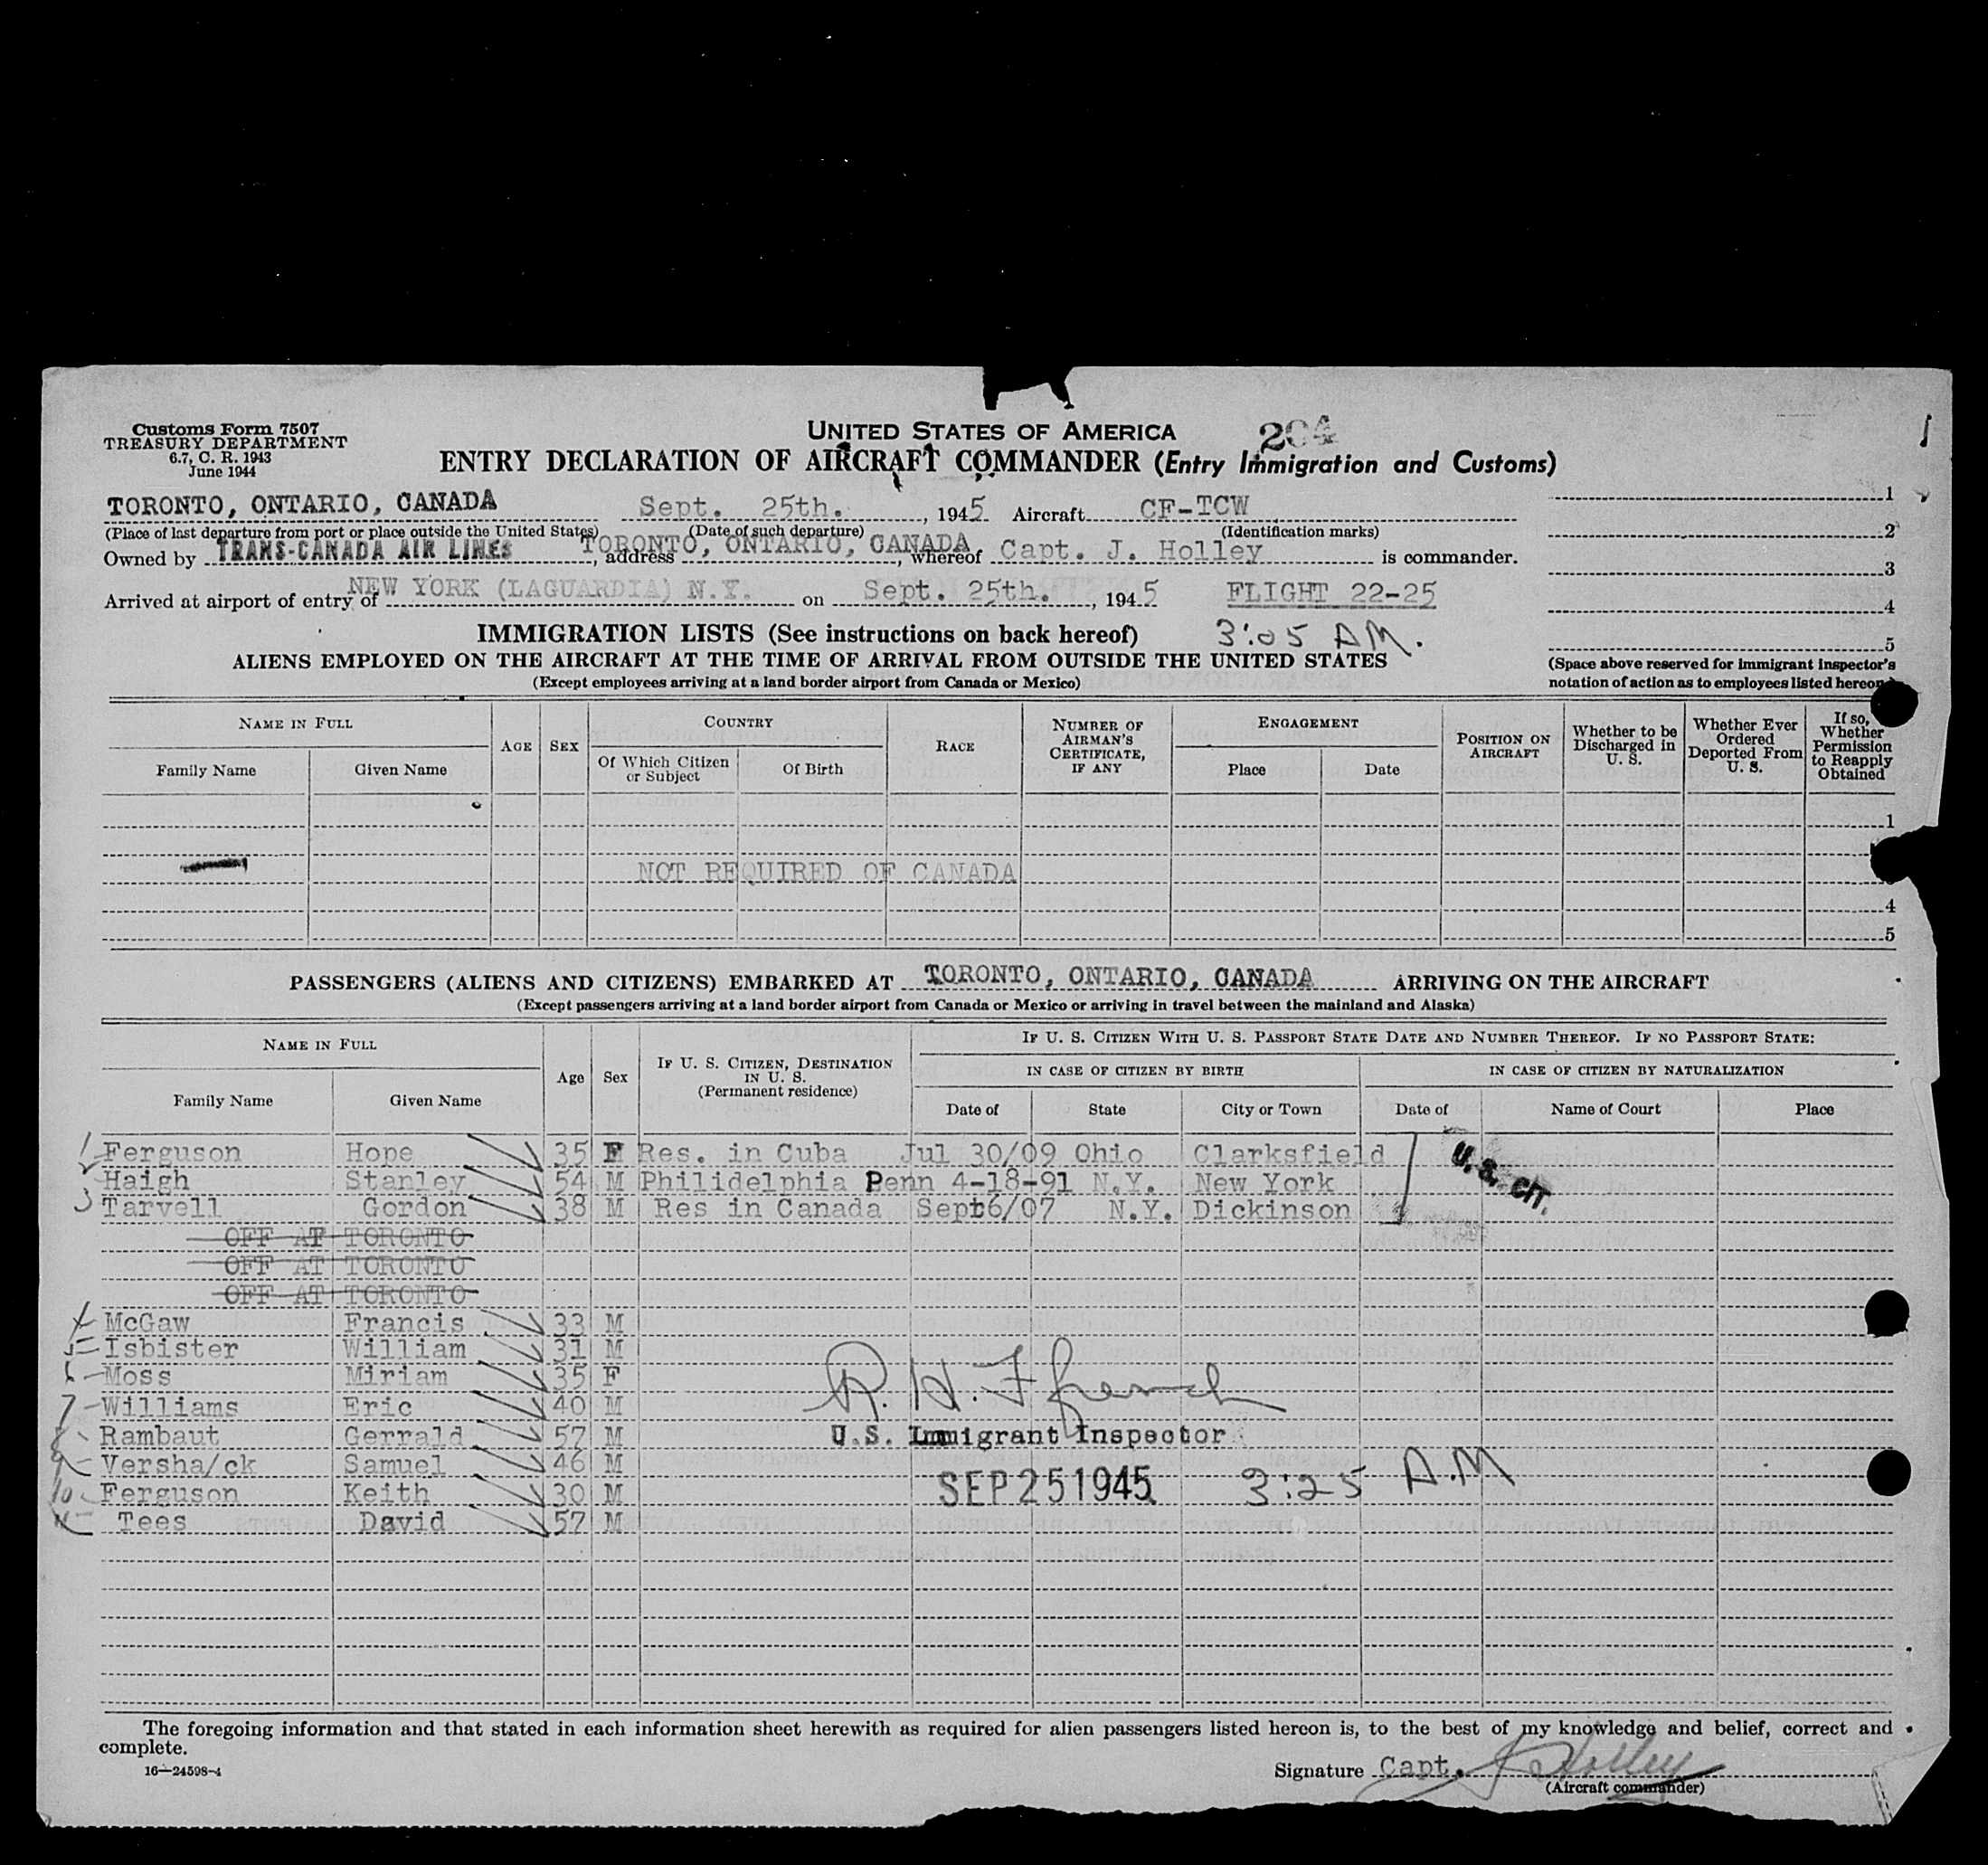 Customs Form 7507
TREASURY DEPARTMENT
6.7, C. R. 1943
June 1944
UNITED STATES OF AMERICA
204
ENTRY DECLARATION OF AIRCRAFT COMMANDER (Entry Immigration and Customs)
TORONTO, ONTARIO, CANADA Sept. 25th. , 1945 Aircraft CF-TCW
(Place of last departure from port or place outside the United States) (Date of such departure) (Identification marks)
Owned by TRANS-CANADA AIR LINES , address TORONTO, ONTARIO, CANADA , whereof Capt. J. Holley is commander.
Arrived at airport of entry of NEW YORK (LAGUARDIA) N.Y. on Sept. 25th. , 1945 FLIGHT 22-25
1
2
3
4
5
(Space above reserved for Immigrant Inspector's
notation of action as to employees listed hereon)
IMMIGRATION LISTS (See instructions on back hereof) 3:05 AM.
ALIENS EMPLOYED ON THE AIRCRAFT AT THE TIME OF ARRIVAL FROM OUTSIDE THE UNITED STATES
(Except employees arriving at a land border airport from Canada or Mexico)
NAME IN FULL
Family Name Given Name
AGE SEX
COUNTRY
Of Which Citizen or Subject Of Birth
RACE
NUMBER OF AIRMAN'S CERTIFICATE, IF ANY
ENGAGEMENT
Place Date
POSITION ON AIRCRAFT
Whether to be Discharged in U. S.
Whether Ever Ordered Deported From U. S.
If so, Whether Permission to Reapply Obtained
1
NOT REQUIRED OF CANADA
4
5
PASSENGERS (ALIENS AND CITIZENS) EMBARKED AT TORONTO, ONTARIO, CANADA ARRIVING ON THE AIRCRAFT
(Except passengers arriving at a land border airport from Canada or Mexico or arriving in travel between the mainland and Alaska)
NAME IN FULL
Family Name Given Name
Age Sex
IF U. S. CITIZEN, DESTINATION IN U. S. (Permanent residence)
IF U. S. CITIZEN WITH U. S. PASSPORT STATE DATE AND NUMBER THEREOF. IF NO PASSPORT STATE:
IN CASE OF CITIZEN BY BIRTH IN CASE OF CITIZEN BY NATURALIZATION
Date of State City or Town Date of Name of Court Place
1 Ferguson Hope 35 F Res. in Cuba Jul 30/09 Ohio Clarksfield
Haigh Stanley 54 M Philidelphia Penn 4-18-91 N.Y. New York
3 Tarvell Gordon 38 M Res in Canada Sept6/07 N.Y. Dickinson
U.S. CIT.
OFF AT TORONTO
OFF AT TORONTO
OFF AT TORONTO
McGaw Francis 33 M
Isbister William 31 M
Moss Miriam 35 F
7 Williams Eric 40 M
Rambaut Gerrald 57 M
9 Versha/ck Samuel 46 M
10 Ferguson Keith 30 M
Tees David 57 M
R. H. Ffrench
U.S. Immigrant Inspector
SEP 25 1945 3:25 A.M
The foregoing information and that stated in each information sheet herewith as required for alien passengers listed hereon is, to the best of my knowledge and belief, correct and
complete.
16—24598-4
Signature Capt. J Holley
(Aircraft commander)